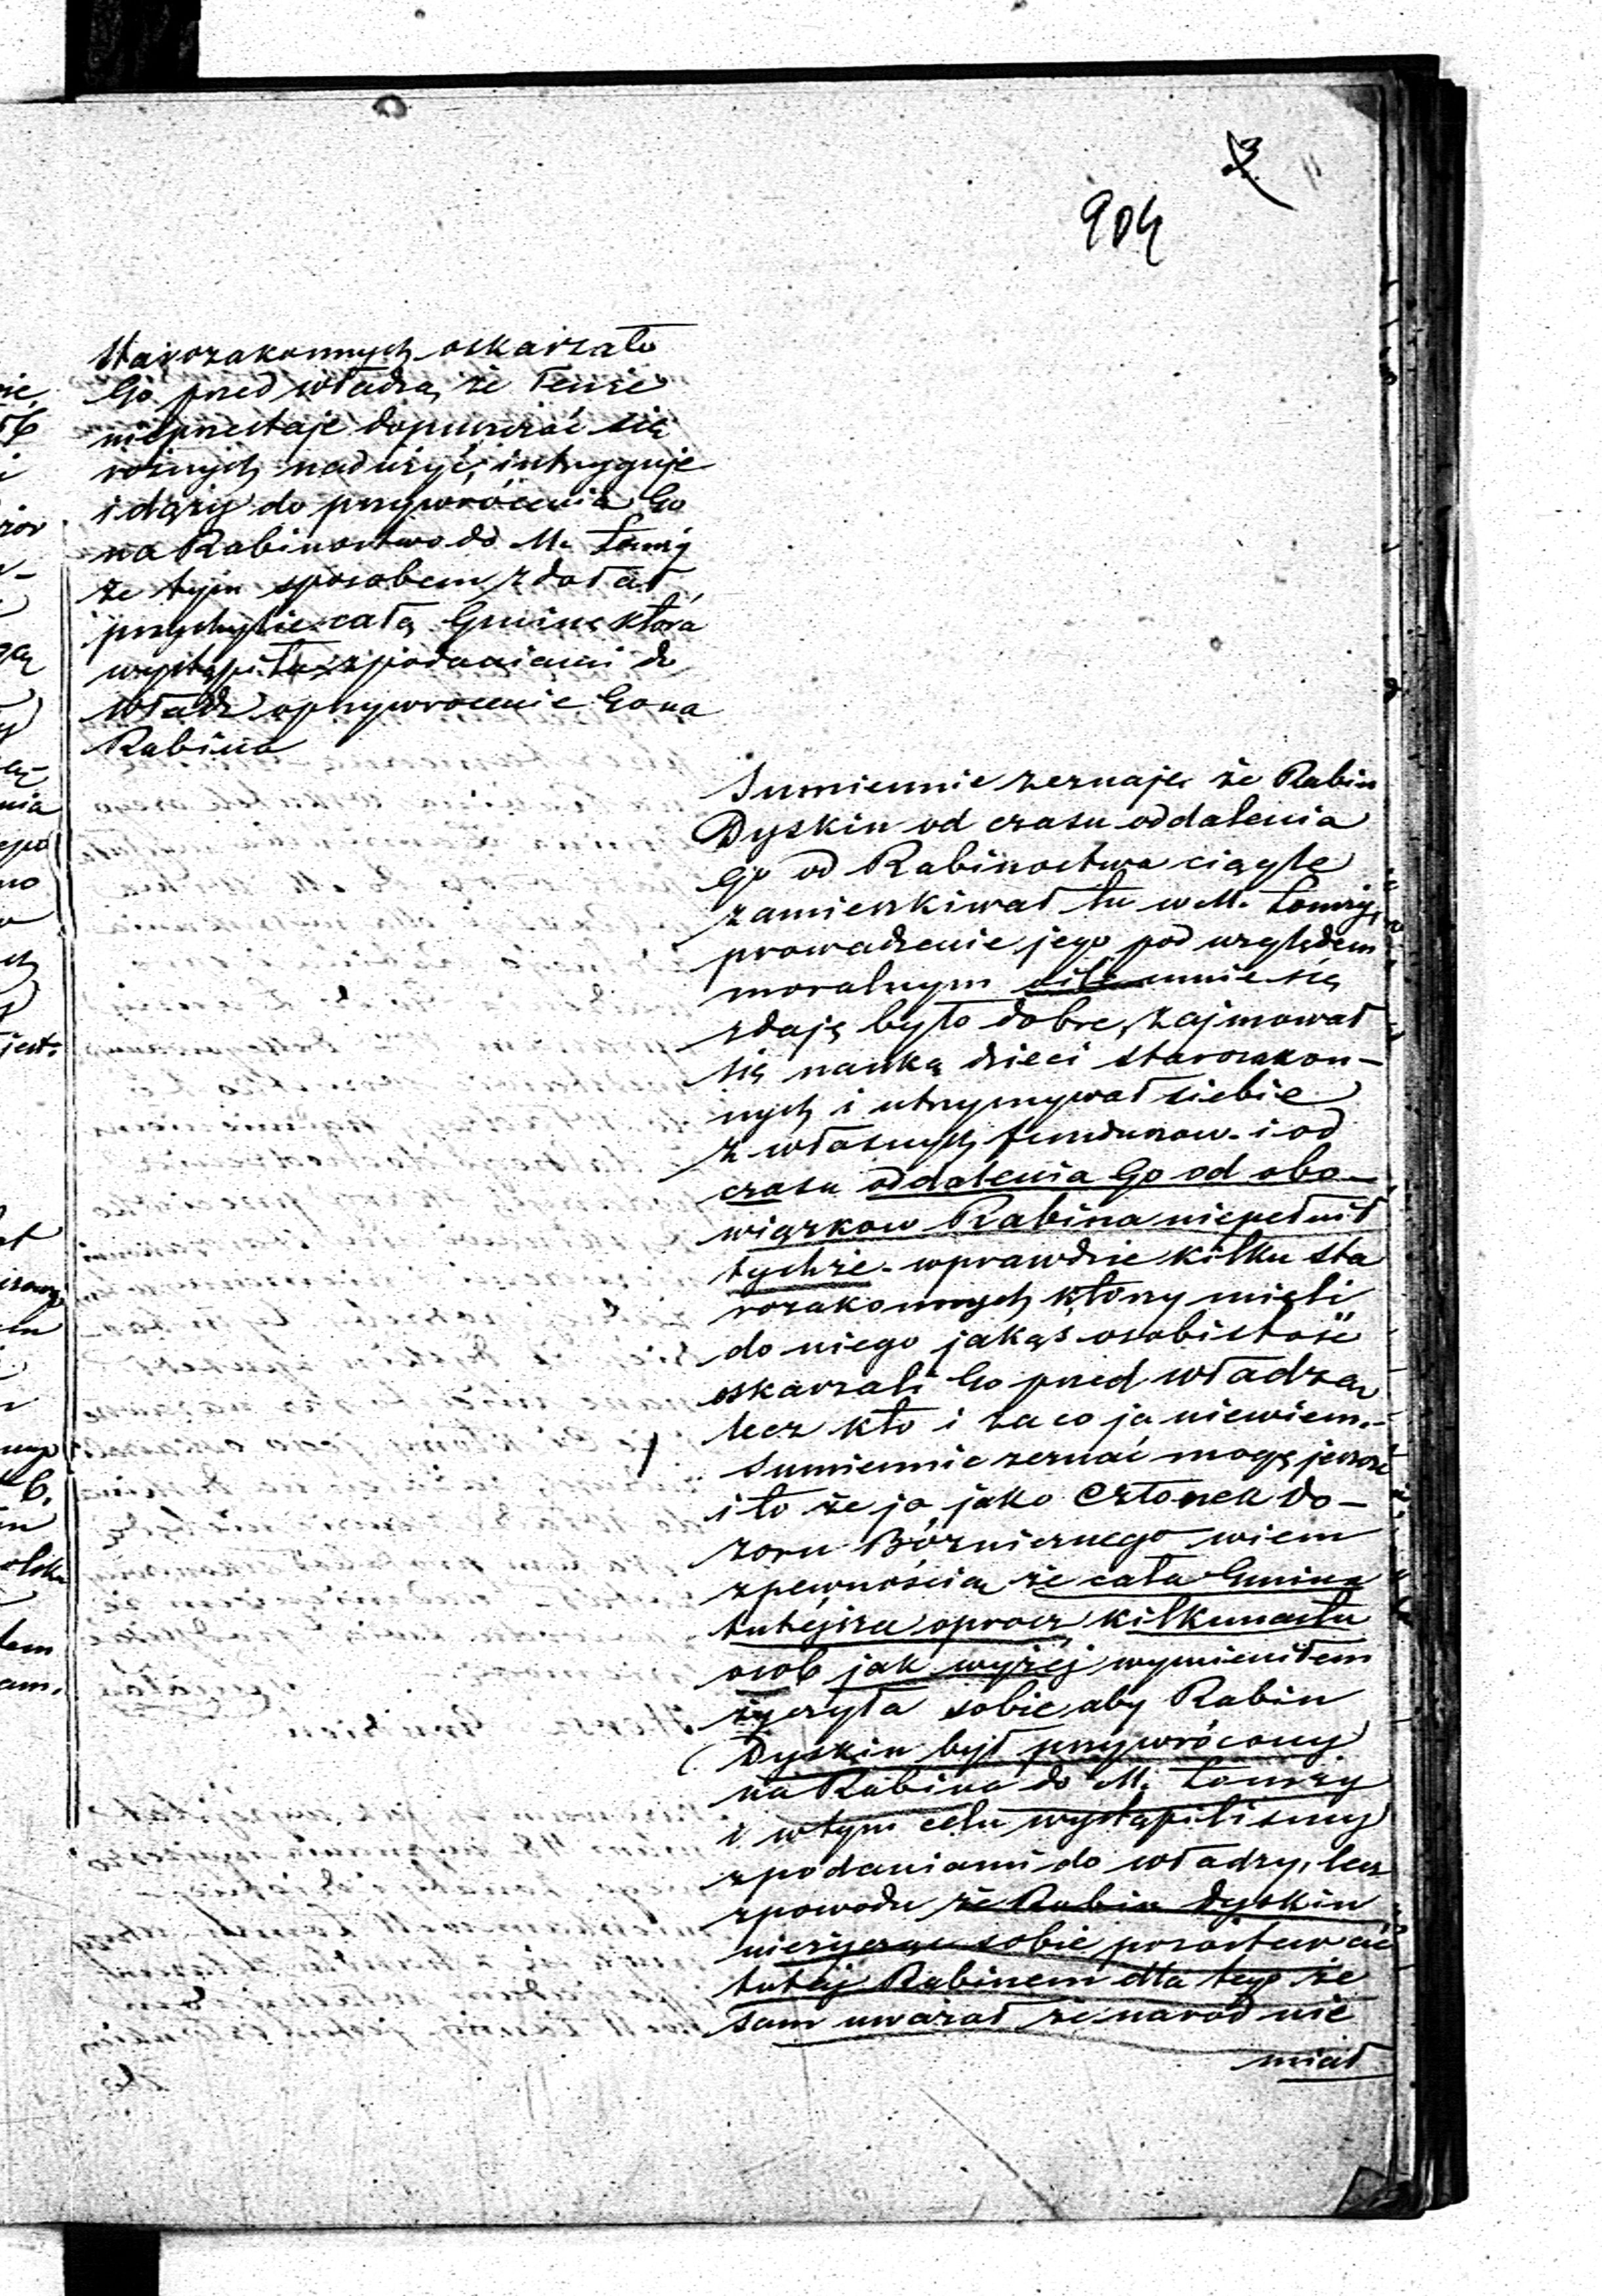 904
Starozakonnych oskarzało
Go przed władzą, że tenże
nieprzestaje dopuszczać się
rożnych nadużyć, intryguje
i dąży do przywrócenia Go
na Rabinostwo do M. Łomży
że tym sposobem zdołał
przychylić całą Gminę która
wystąpiła z podaniami do
Władz o przywrocenie Go na
Rabina
Sumiennie zeznaję że Rabin
Dyskin od czasu oddalenia
Go od Rabinostwa ciągle
zamieszkiwał tu w M. Łomży,
prowadzenie jego pod względem
moralnym o ile mnie się
zdaję było dobre, zajmował
się nauką dzieci starozakon-
nych i utrzymywał siebie
z własnych funduszow. i od
czasu oddalenia Go od obo-
wiązkow Rabina niepełnił
tychże. wprawdzie kilku sta
rozakonnych ktorzy mieli
do niego jakąs osobistość
oskarzali Go przed władzą
lecz kto i za co ja niewiem.-
Sumiennie zeznać mogę jeszcze
i to że ja, jako Członek Do-
zoru Bóżnicznego wiem
z pewnością że cała Gmina
tutejsza oprocz kilkunastu
osob jak wyżej wymieniłem
życzyła sobie aby Rabin
Dyskin był przywrócony
na Rabina do M. Łomży
i w tym celu wystąpilismy
z podaniami do władzy, lecz
z powodu że Rabin Dyskin
nieżycząc sobie pozostawać
tutaj Rabinem dla tego że
sam uważał że narod nie
miał